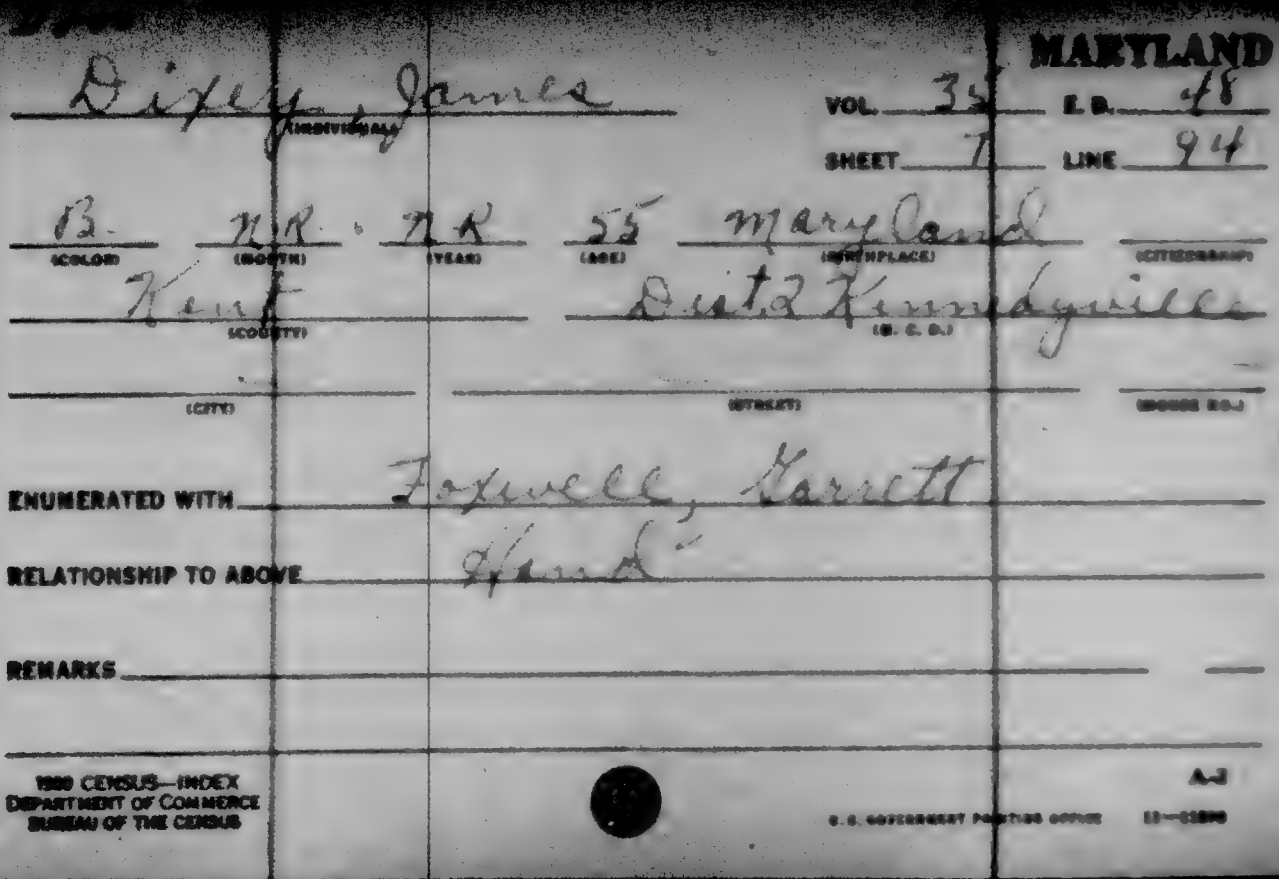 MARYLAND
Dixey, James
(INDIVIDUAL)
VOL. 35 E. D. 48
SHEET 7 LINE 94
B. NR. NR 55 Maryland
(COLOR) (MONTH) (YEAR) (AGE) (BIRTHPLACE) (CITIZENSHIP)
Kent Dist 2 Kennedyville
(COUNTY) (M. C. D.)
(CITY) (STREET) (HOUSE NO.)
ENUMERATED WITH Foxwell, Garrett
RELATIONSHIP TO ABOVE Hand
REMARKS
1900 CENSUS—INDEX
DEPARTMENT OF COMMERCE
BUREAU OF THE CENSUS
U.S. GOVERNMENT PRINTING OFFICE